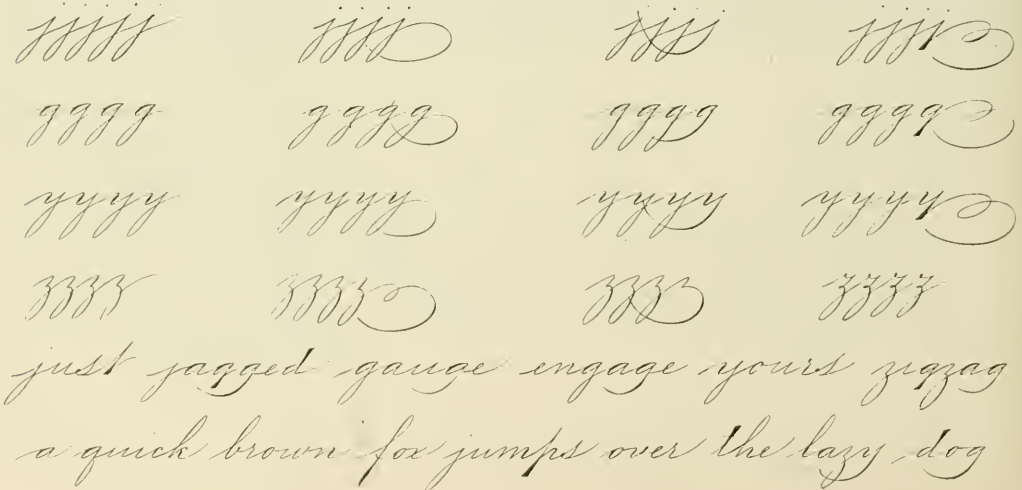 jjjjj jjjj jjjj jjjj
gggg gggg gggg gggg
yyyy yyyy yyyy yyyy
zzzz zzzz zzzz zzzz
just jagged gauge engage yours zigzag
a quick brown fox jumps over the lazy dog